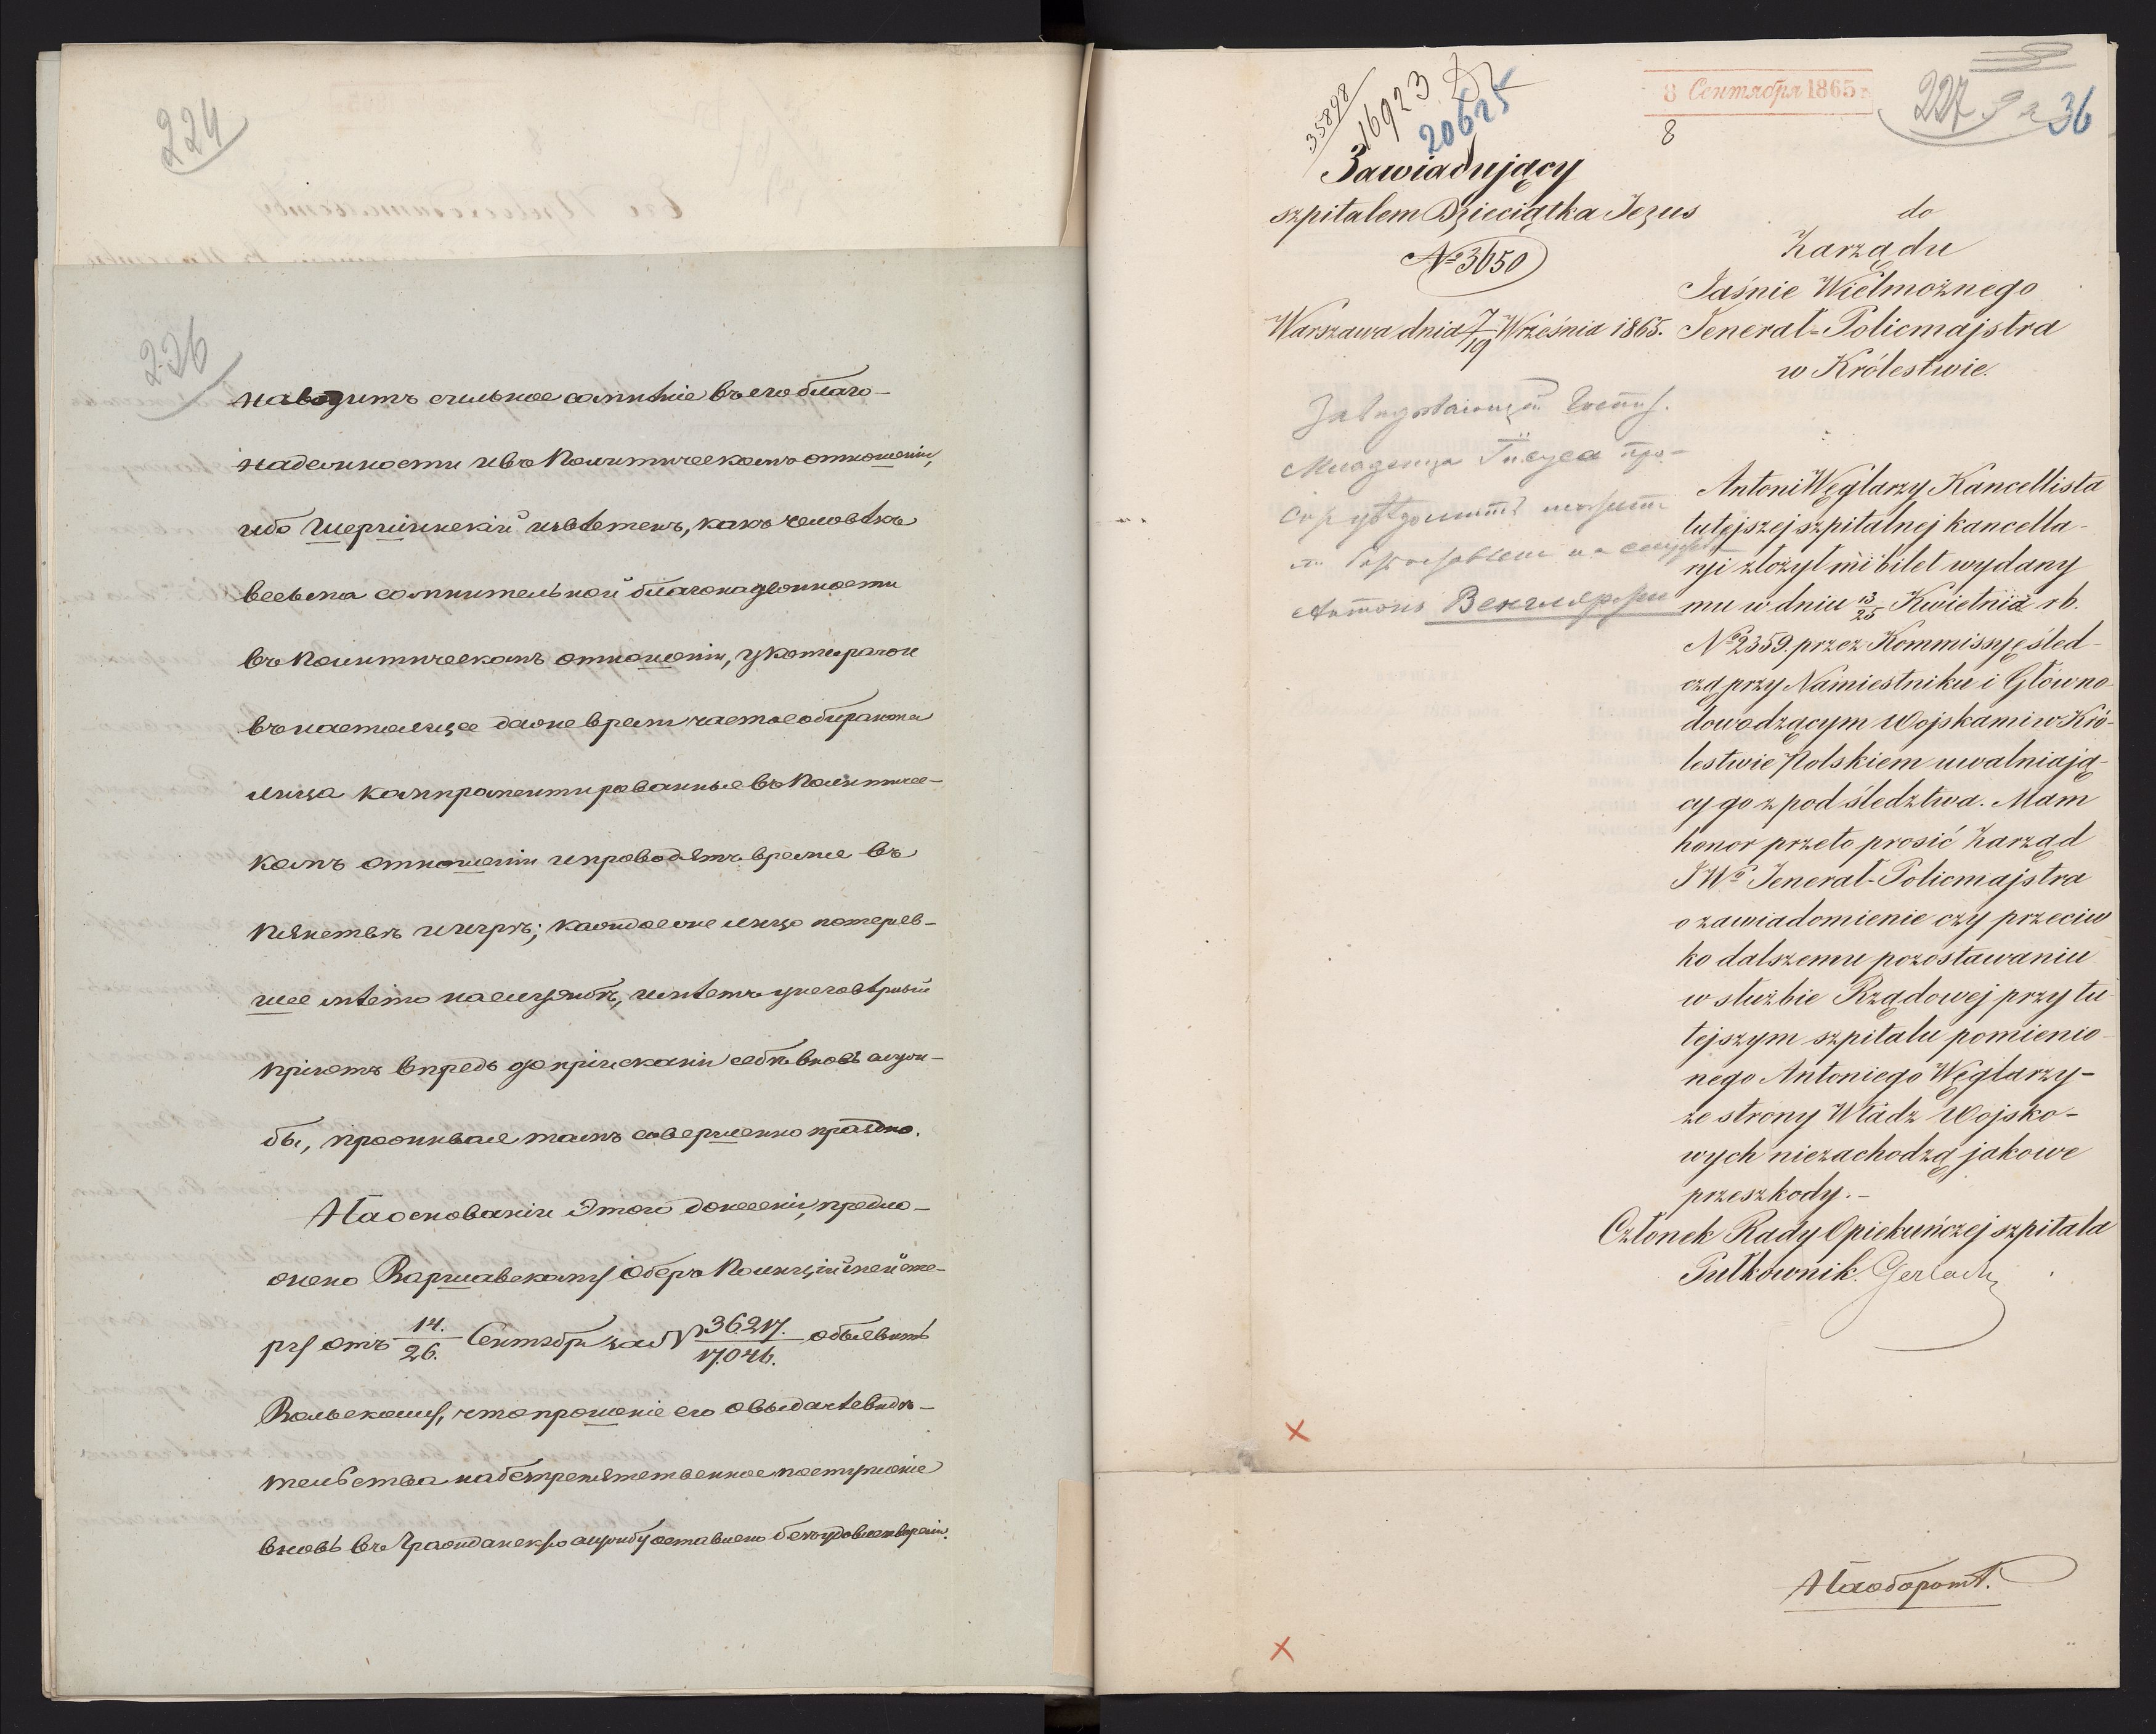 224
226
наводитъ сильное сомнѣніе въ его благо-
надежности и въ Политическомъ отношеніи,
ибо Шершинскій извѣстенъ, какъ человѣкъ
весьма сомнительной благонадежности
въ Политическомъ отношеніи, у котораго и
въ настоящее даже время часто собираются
лица компрометированные въ Политичес-
комъ отношеніи и проводятъ время въ
пьянствѣ и игрѣ; каждое же лицо потеряв-
шее мѣсто на службѣ, имѣетъ у него вѣрный
пріютъ впредь до пріисканія себѣ вновь служ-
бы, проживая тамъ совершенно праздно.
На основаніи этого донесенія, предло-
жено Варшавскому Оберъ Полиціймейсте-
ру отъ 14./26. Сентября за № 36217./17.046. объявить
Вольскому, что прошеніе его о выдачѣ свидѣ-
тельства на безпрепятственное поступленіе
вновь въ Гражданскую службу оставлено безъ удовлетворенія.
35898
16923
20625
8 Сентября 1865 г.
8
227
36
Zawiadujący
szpitalem Dzieciątka Jezus
№ 3650
Warszawa dnia 7/19 Września 1865.
do
Zarządu
Jaśnie Wielmożnego
Jenerał-Policmajstra
w Królestwie.
Завѣдывающій Госпит.
Младенца Іисуса про-
ситъ увѣдомить можетъ
ли быть оставленъ на службѣ
Антонъ Венгляржи
Antoni Węglarzy Kancellista
tutejszej szpitalnej kancella-
ryi złożył mi bilet wydany
mu w dniu 13/25 Kwietnia rb.
№ 2359. przez Kommissyę śled-
czą przy Namiestniku i Główno-
dowodzącym Wojskami w Kró-
lestwie Polskiem uwalniają-
cy go z pod śledztwa. Mam
honor przeto prosić Zarząd
JWº Jenerał-Policmajstra
o zawiadomienie czy przeciw
ko dalszemu pozostawaniu
w służbie Rządowej przy tu-
tejszym szpitalu pomienio-
nego Antoniego Węglarzy-
ze strony Władz Wojsko-
wych niezachodzą jakowe
przeszkody.-
Członek Rady Opiekuńczej szpitala
Pułkownik. Gerlach
На оборотѣ.